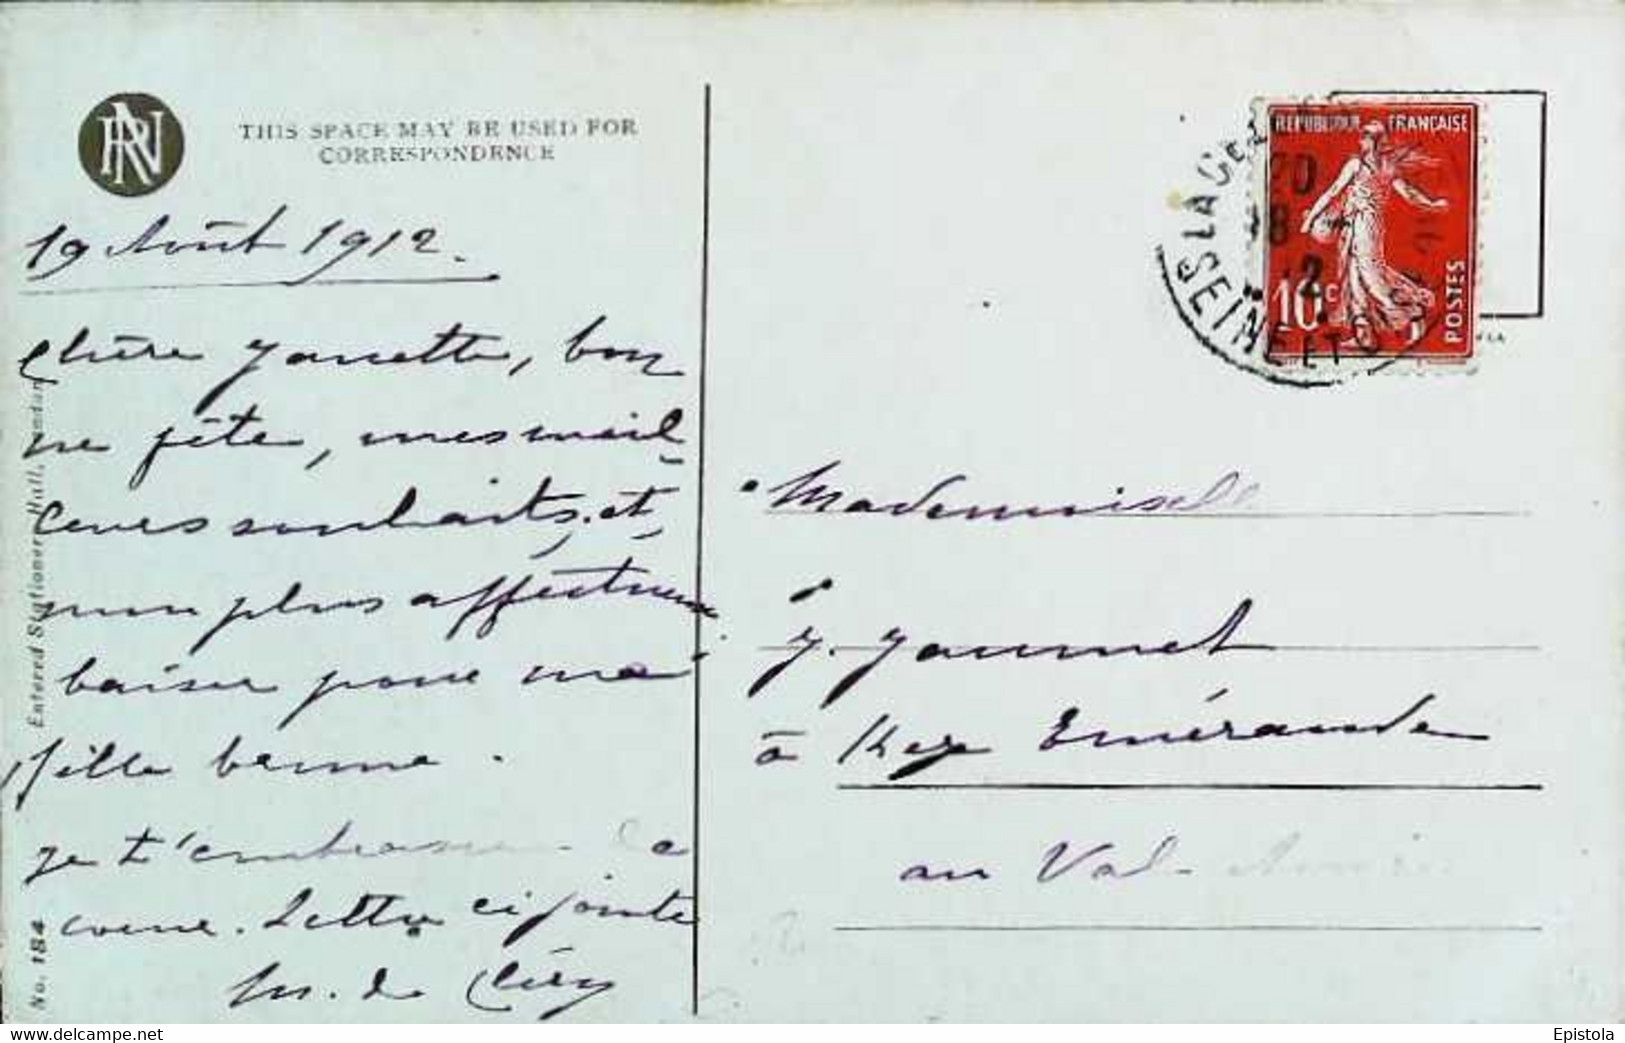 RN
THIS SPACE MAY BE USED FOR
CORRESPONDENCE
19 Août 1912.
Chère Yanette, bon
ne fête, mes meil
leures souhaits, et,
mon plus affectueux
baiser pour ma
fille
Je t'embrasse de
coeur. Lettre ci jointe
M. de Cléry
No. 184 Entered Stationers Hall, London
REPUBLIQUE FRANÇAISE
10c
POSTES
20
12
SEINE ET OISE
Mademoiselle
Y. Jaumet
à Ker Emeraude
au Val-
Epistola